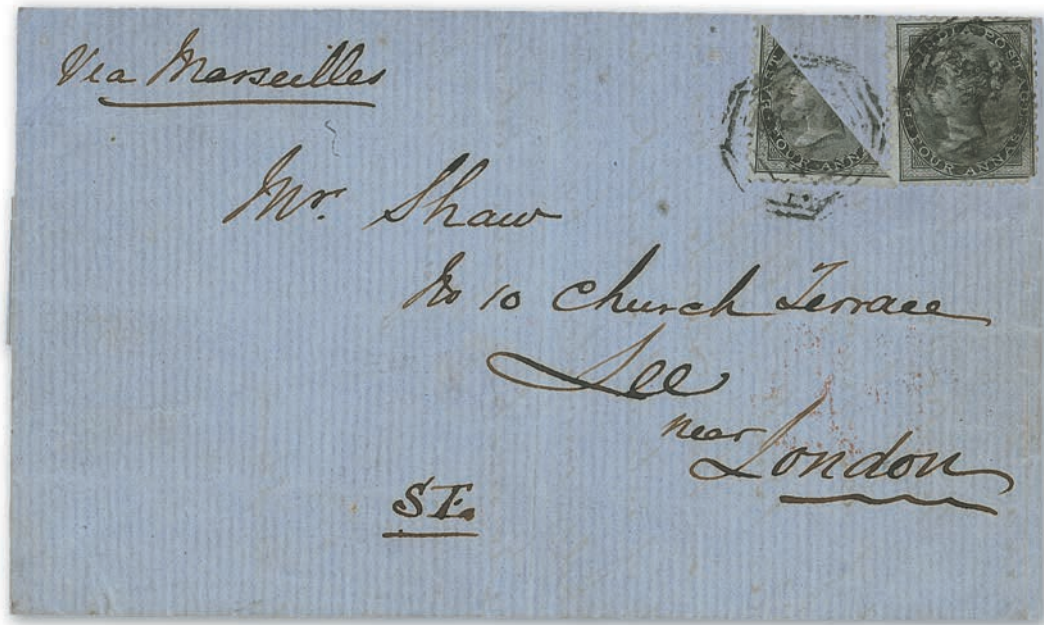 Via Marseilles
EAST
FOUR ANNA
INDIA POSTAGE
FOUR ANNAS
Mr. Shaw
No 10 Church Terrace
Lee
near London
S E.